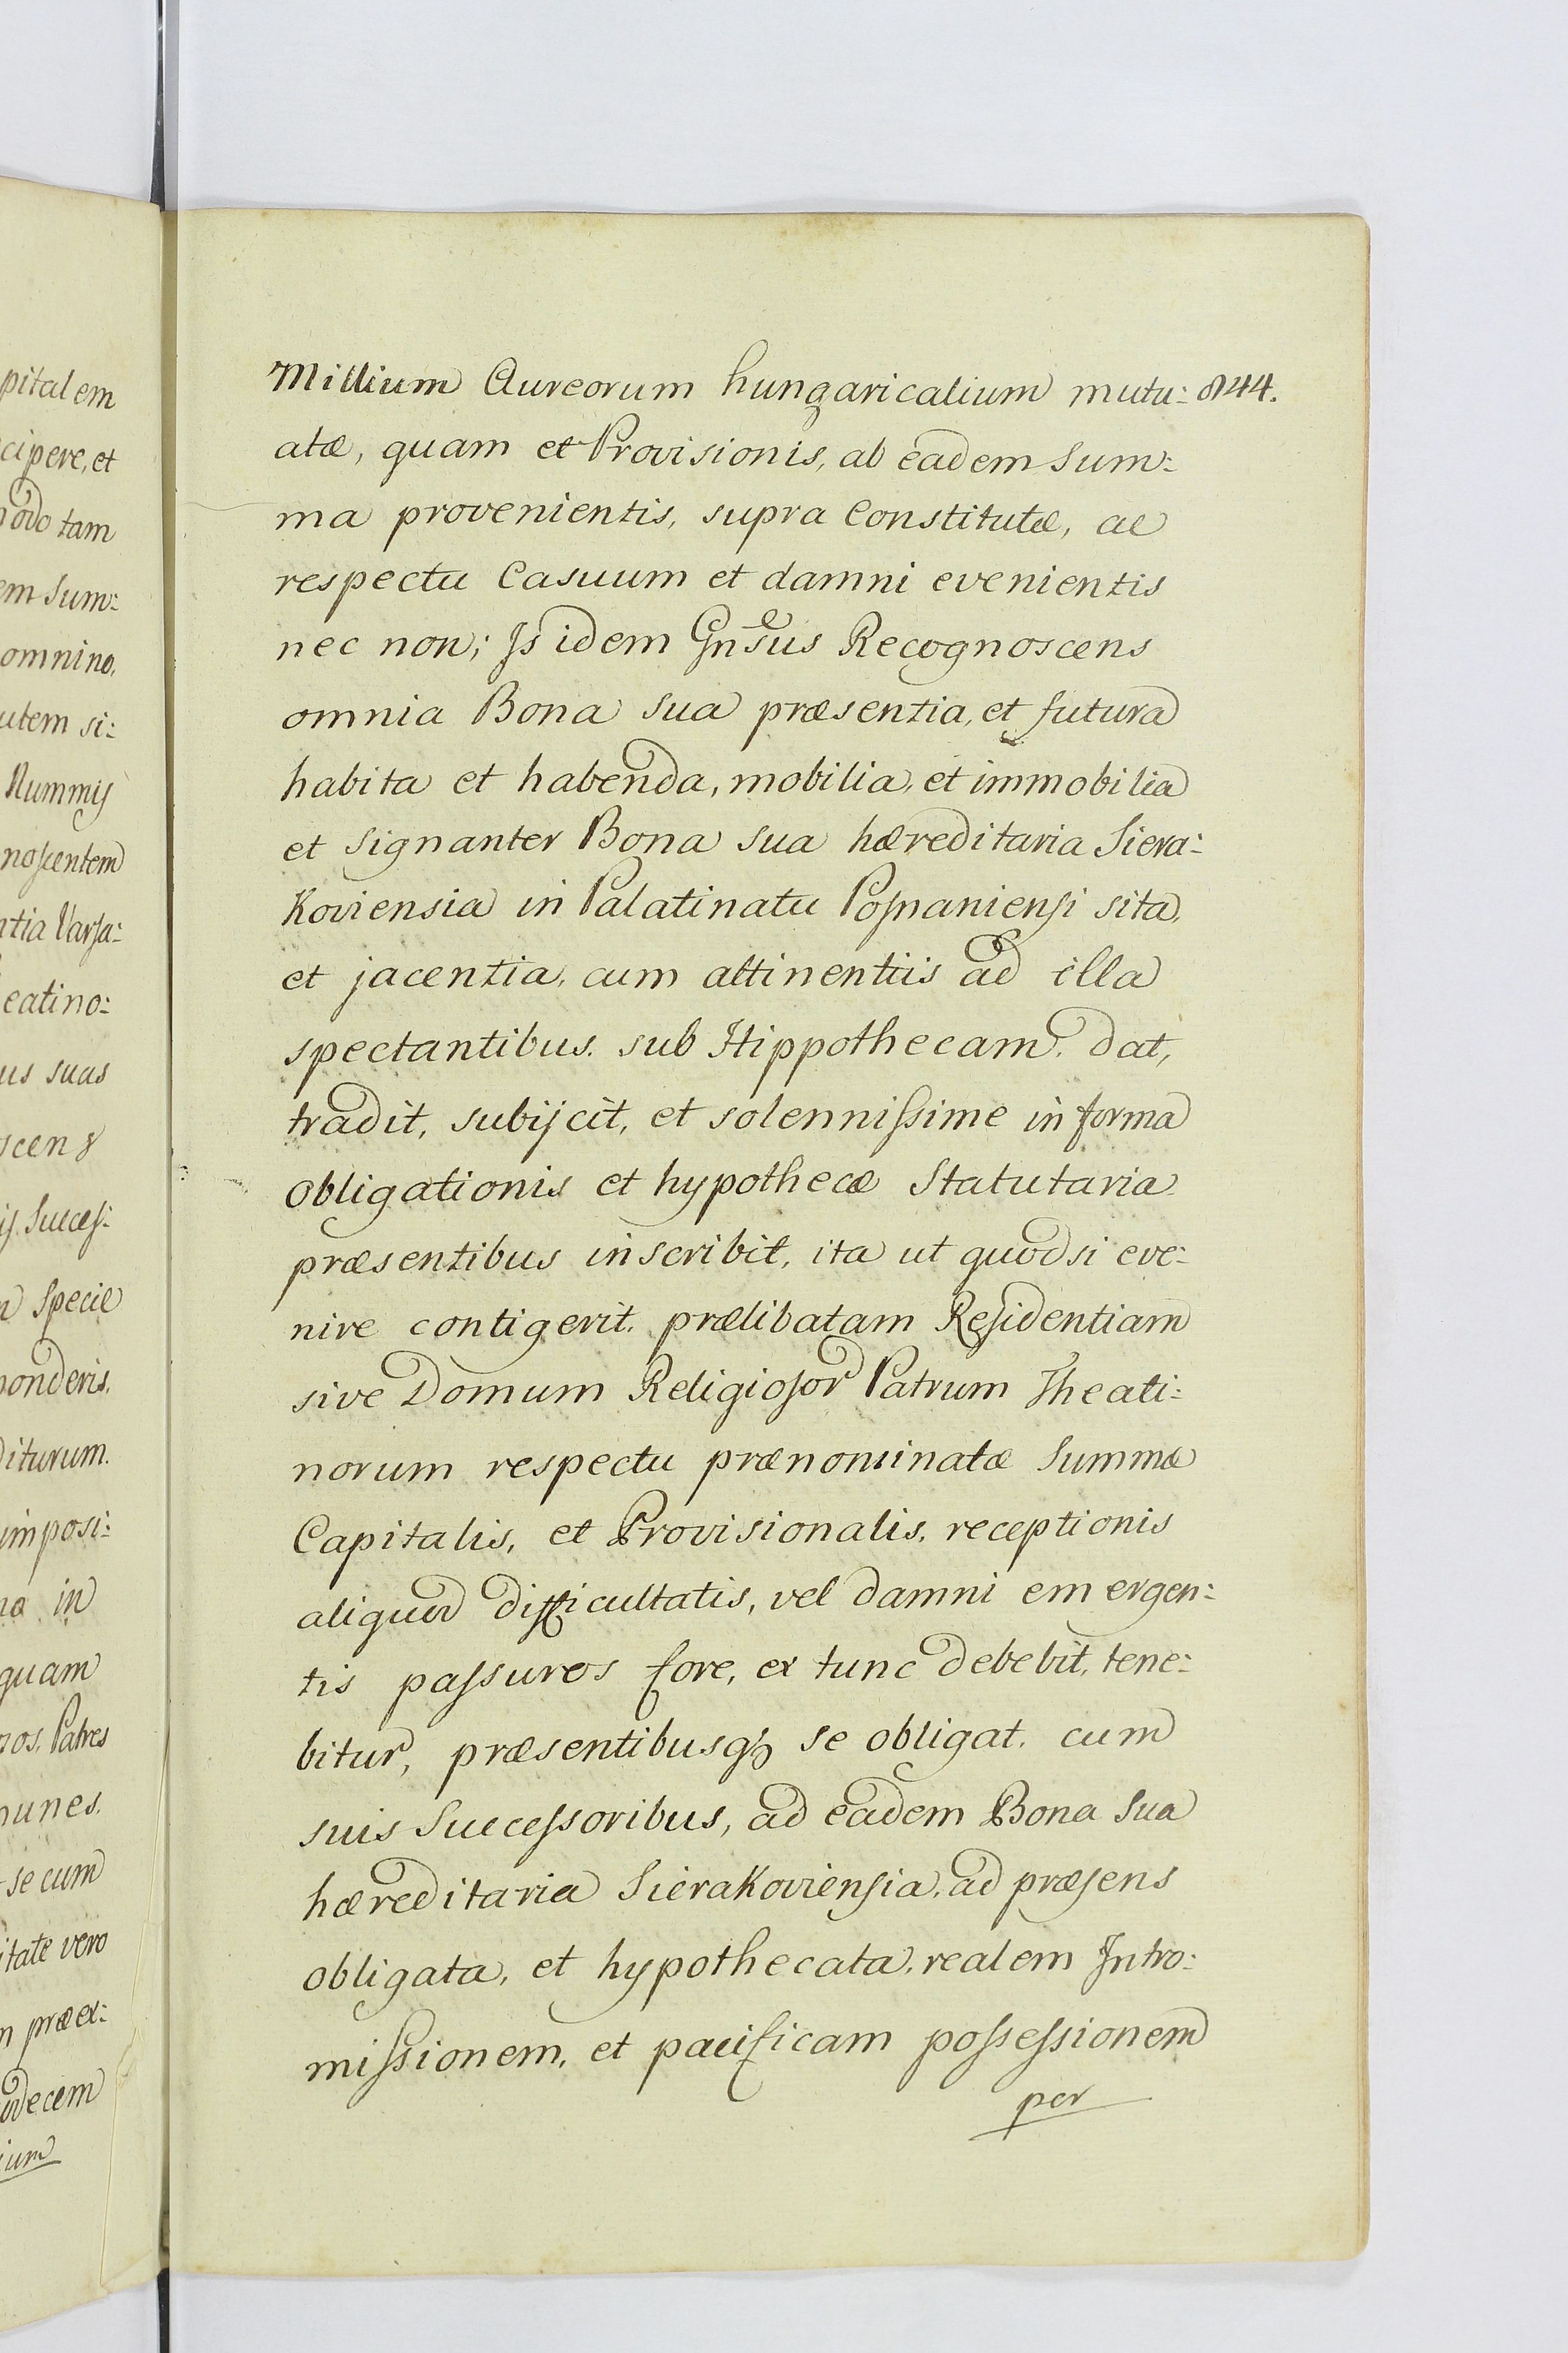 Millium Aureorum hungaricalium mutu: 844.
atæ, quam et Provisionis, ab eadem Sum:
ma provenientis, supra Constitutæ, ac
respectu Casuum et damni evenientis
nec non; Is idem Gnsus Recognoscens
omnia Bona sua præsentia, et futura
habita et habenda, mobilia, et immobilia
et signanter Bona sua hæreditaria Siera:
Koviensia in Palatinatu Posnaniensi sita,
et jacentia, cum attinentiis ad illa
spectantibus. sub Hippothecam. dat,
tradit, subijcit, et solennissime in forma
obligationis et hypothecæ Statutaria
præsentibus inscribit, ita ut quodsi eve:
nire contigerit. prælibatam Residentiam
sive Domum Religiosor Patrum Theati:
norum respectu prænominatæ Summæ
Capitalis, et Provisionalis, receptionis
aliquod difficultatis, vel damni emergen:
tis passuros fore, ex tunc debebit, tene:
bitur, præsentibusq3 se obligat. cum
suis Successoribus, ad eadem Bona sua
hæreditaria SieraKoviensia, ad præsens
obligata, et hypothecata, realem Intro:
missionem, et pacificam possessionem
per
pitalem
cipere, et
odo tam
em Sum:
omnino.
utem si:
Nummis
noscentem
ntia Varsa:
eatino:
us suas
scens
Succes:
Specie
ponderis.
diturum.
imposi:
in
quam
nos. Patres
munes.
se cum
itate vero
præex:
decem
ium